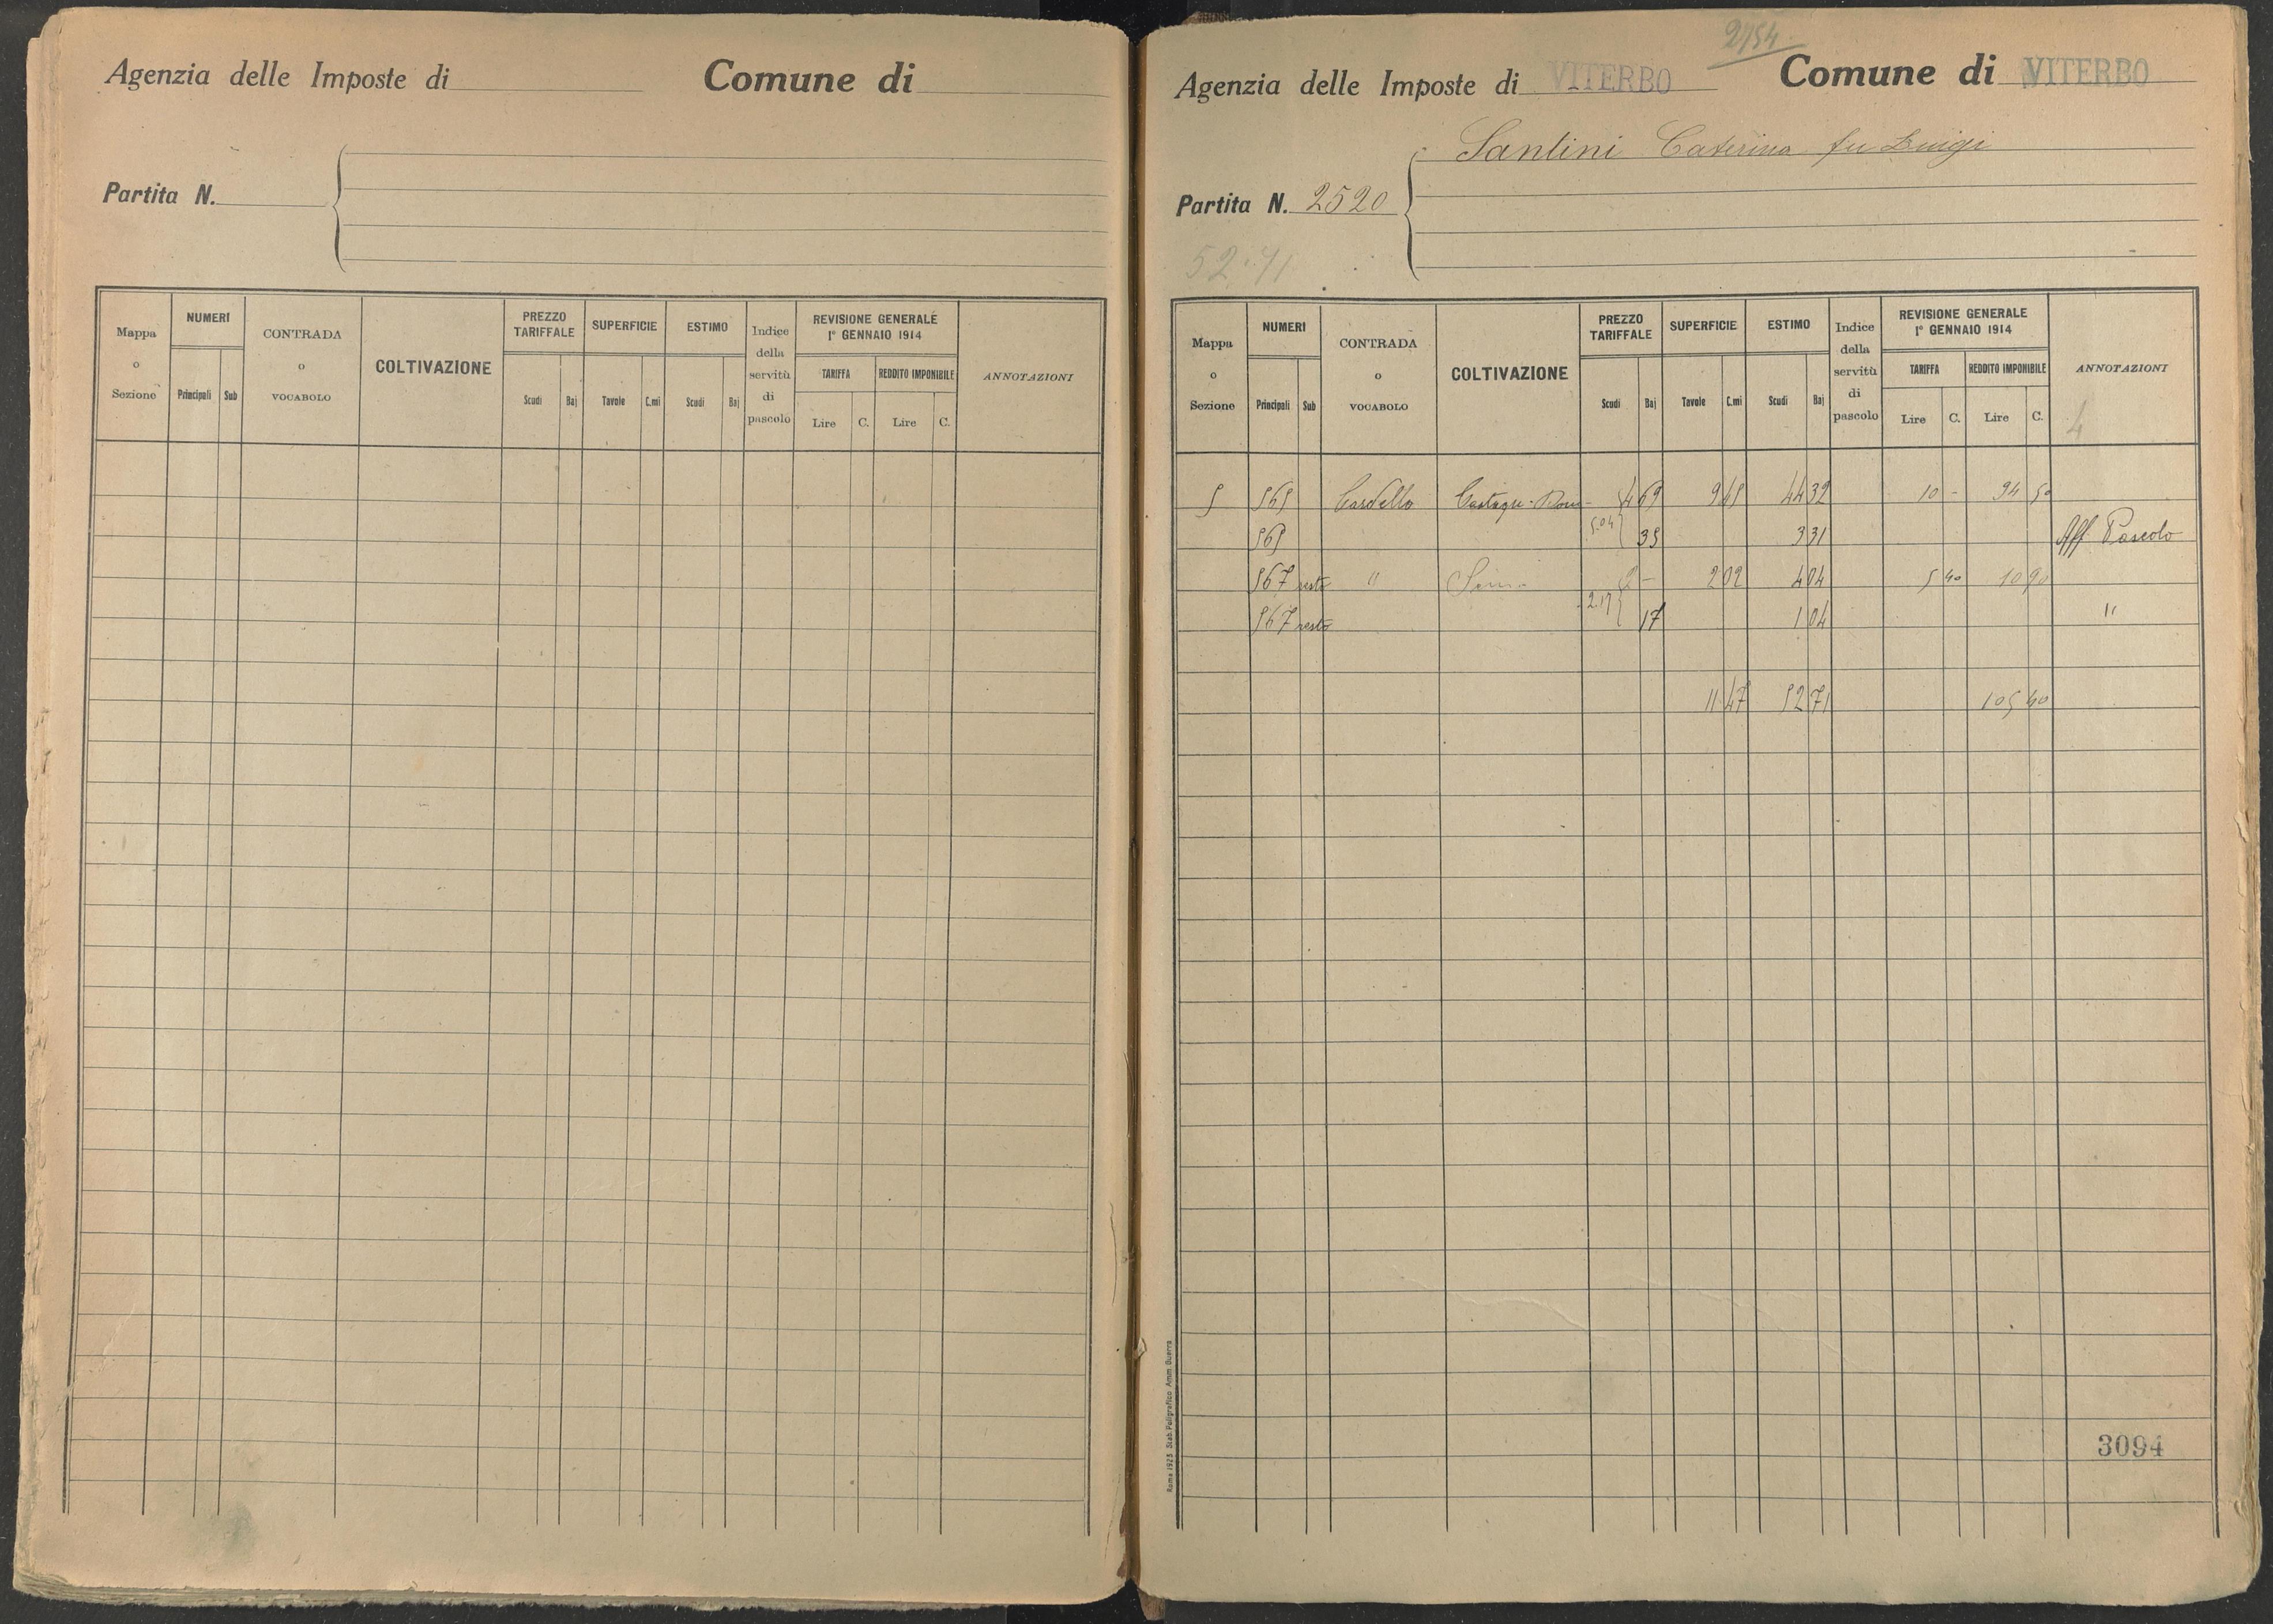 Agenzia delle Imposte di
Comune di
Partita N.
Mappa o Sezione
NUMERI
Principali
Sub
CONTRADA o VOCABOLO
COLTIVAZIONE
PREZZO TARIFFALE
Scudi
Baj
SUPERFICIE
Tavole
C.mi
ESTIMO
Scudi
Baj
Indice della servitù di pascolo
REVISIONE GENERALE
1° GENNAIO 1914
TARIFFA
Lire
C.
REDDITO IMPONIBILE
Lire
C.
ANNOTAZIONI
2154
Agenzia delle Imposte di VITERBO
Comune di VITERBO
Santini Caterina fu Luigi
Partita N. 2520
52.71
Mappa o Sezione
NUMERI
Principali
Sub
CONTRADA o VOCABOLO
COLTIVAZIONE
PREZZO TARIFFALE
Scudi
Baj
SUPERFICIE
Tavole
C.mi
ESTIMO
Scudi
Baj
Indice della servitù di pascolo
REVISIONE GENERALE
1° GENNAIO 1914
TARIFFA
Lire
C.
REDDITO IMPONIBILE
Lire
C.
ANNOTAZIONI
4
5 565 Cardello 4 69 9 45 44 32 10 - 94 50
565 5.04 35 3 31 Aff Pascolo
567 resto " 2 - 2 02 4 04 5 40 10 90
567 resto 2.17 17 1 04 "
11 47 52 71 105 40
3094
Roma 1923 Stab. Poligrafico Amm. Guerra